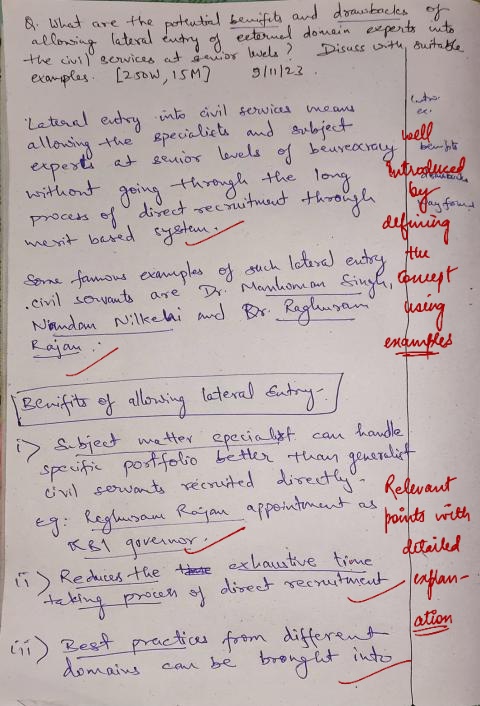 Q. What are the potential benifits and drawbacks of
allowing lateral entry of external domain experts into
the civil services at senior levels? Discuss with suitable
examples. [250W, 15M] 9/11/23.
Intro.
ex.
benifits
drawbacks
way forward
Lateral entry into civil services means
allowing the specialists and subject
experts at senior levels of beureocracy
without going through the long
process of direct recruitment through
merit based system.
well
introduced
by
defining
the
concept
using
examples
Some famous examples of such lateral entry
civil servants are Dr. Manhoman Singh,
Nandan Nilkeki and Dr. Raghuram
Rajan.
Benifits of allowing lateral Entry-
i) Subject matter specialist can handle
specific portfolio better than generalist
civil servants recruited directly.
eg: Raghuram Rajan appointment as
RBI governor.
ii) Reduces the exhaustive time
taking process of direct recruitment
iii) Best practices from different
domains can be brought into
Relevant
points with
detailed
explan-
ation